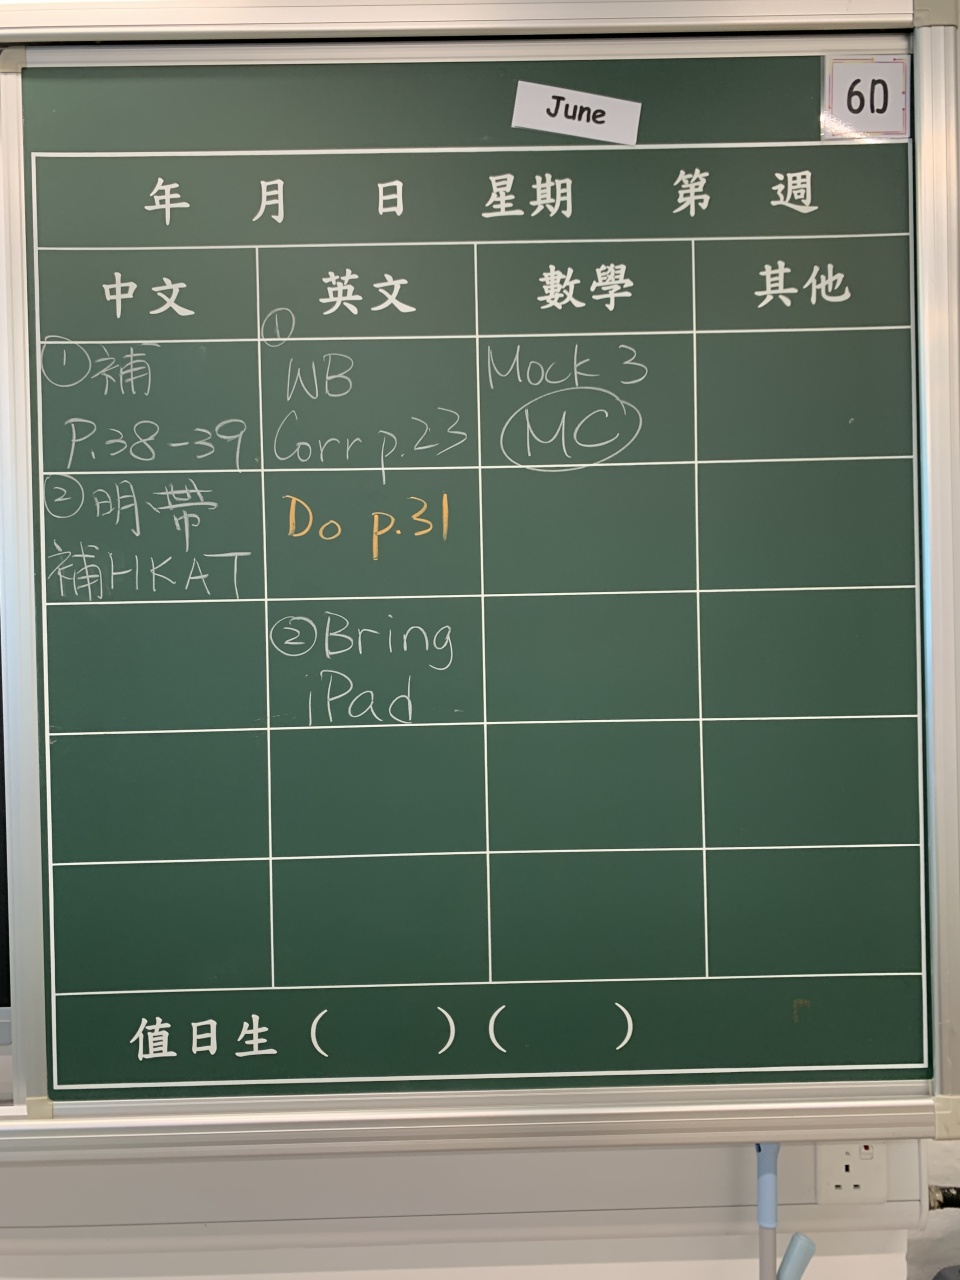 June
6D
年 月 日 星期 第 週
中文 英文 數學 其他
①補
P.38-39.
②明、帶
補HKAT
①
WB
Corr p.23
Do p.31
②Bring
iPad
Mock 3
MC
值日生 ( ) ( )